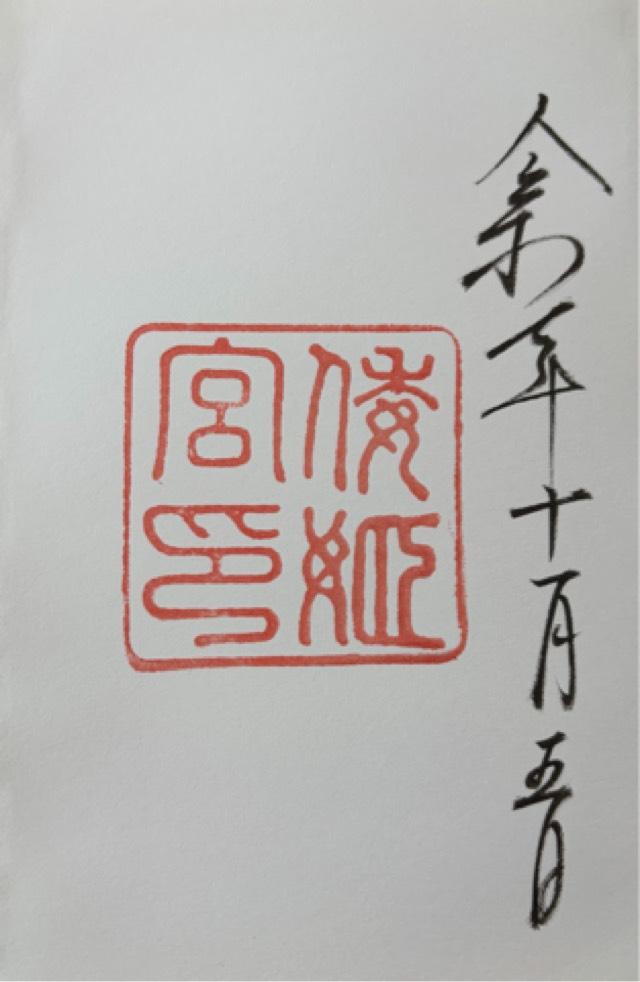 令和年十月五日
倭姫
宮印